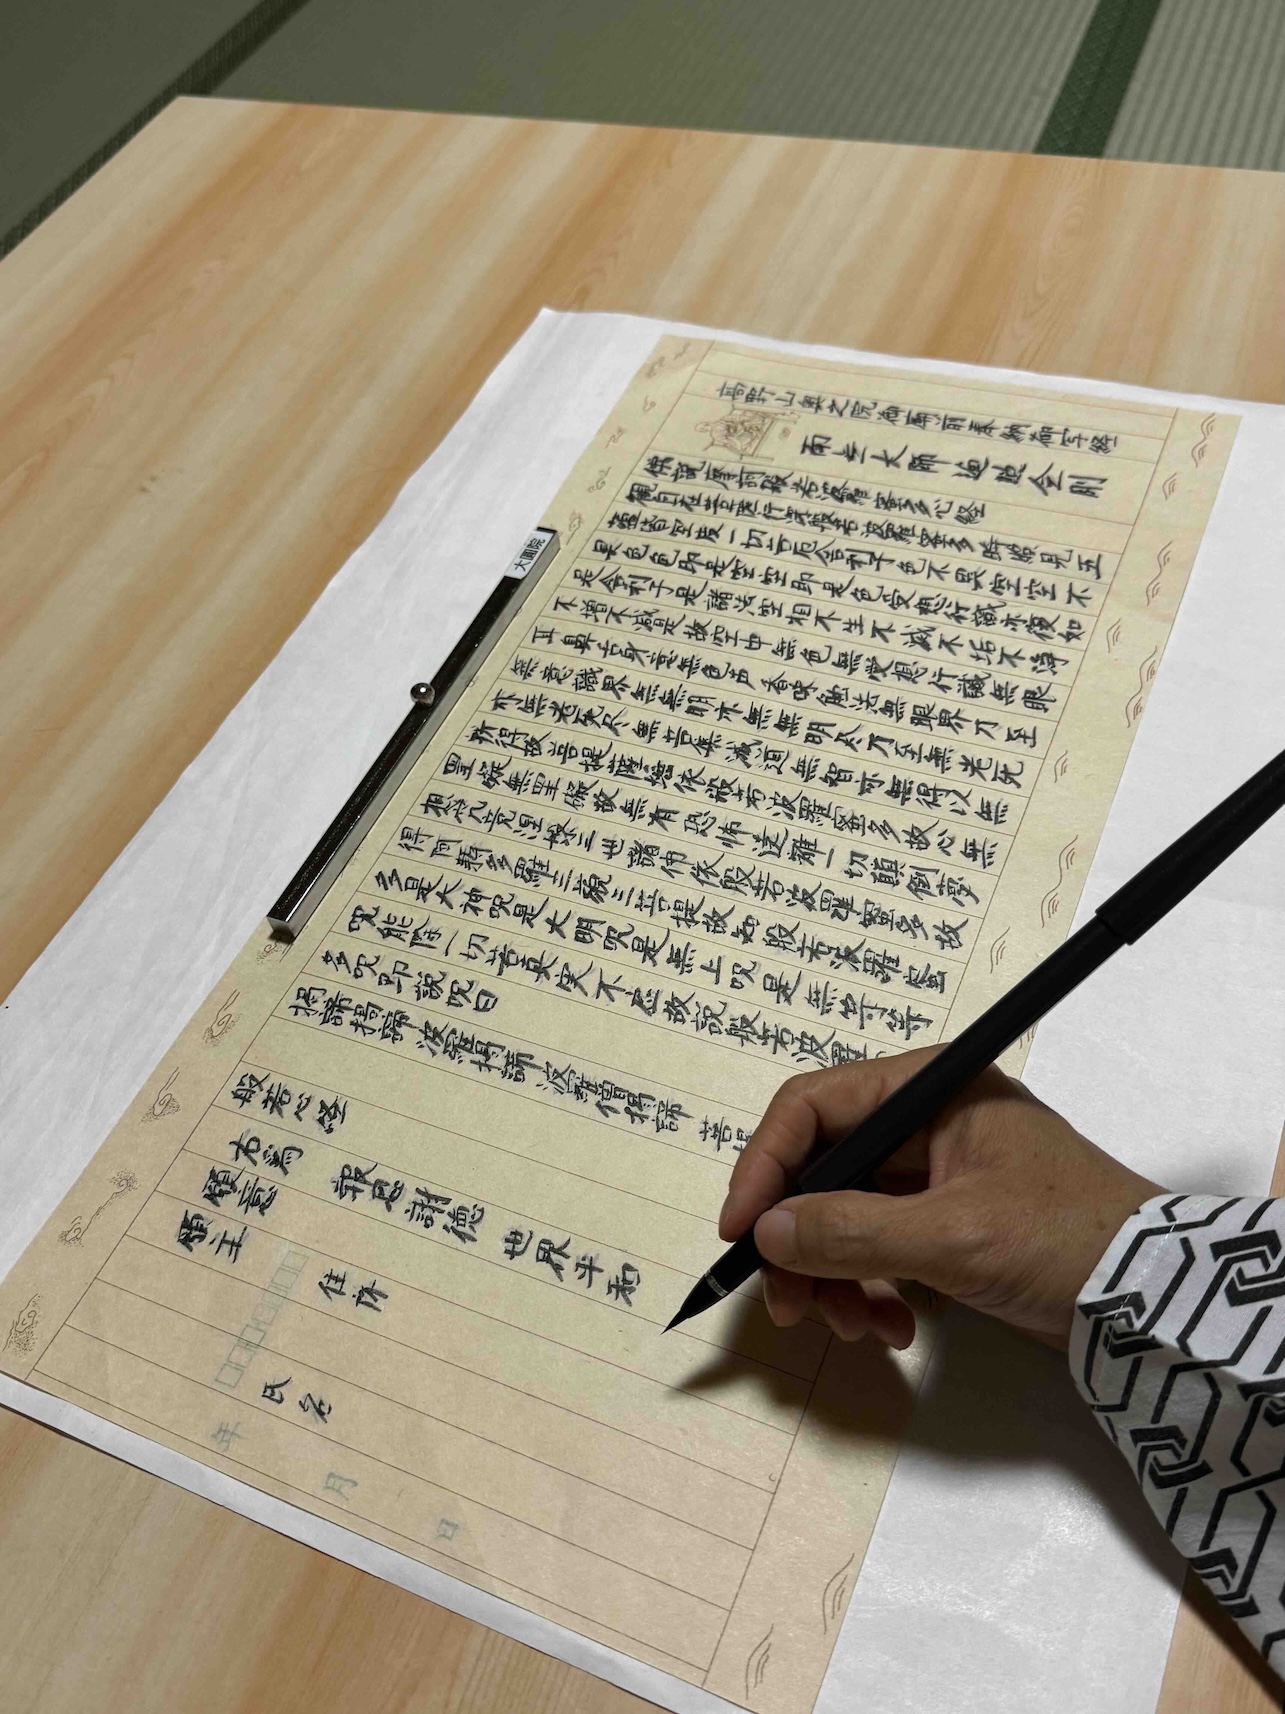 高野山奥之院御廟前奉納御写経
南無大師遍照金剛
仏説摩訶般若波羅蜜多心経
観自在菩薩行深般若波羅蜜多時照見五
蘊皆空度一切苦厄舎利子色不異空空不
異色色即是空空即是色受想行識亦復如
是舎利子是諸法空相不生不滅不垢不浄
不増不減是故空中無色無受想行識無眼
耳鼻舌身意無色声香味触法無眼界乃至
無意識界無無明亦無無明尽乃至無老死
亦無老死尽無苦集滅道無智亦無得以無
所得故菩提薩埵依般若波羅蜜多故心無
罣礙無罣礙故無有恐怖遠離一切顛倒夢
想究竟涅槃三世諸仏依般若波羅蜜多故
得阿耨多羅三藐三菩提故知般若波羅蜜
多是大神呪是大明呪是無上呪是無等等
呪能除一切苦真実不虚故説般若波羅
多呪即説呪曰
羯諦羯諦 波羅羯諦 波羅僧羯諦 菩提
般若心経
右為 報恩謝徳 世界平和
願意
願主
住所
氏名
年 月 日
大圓院